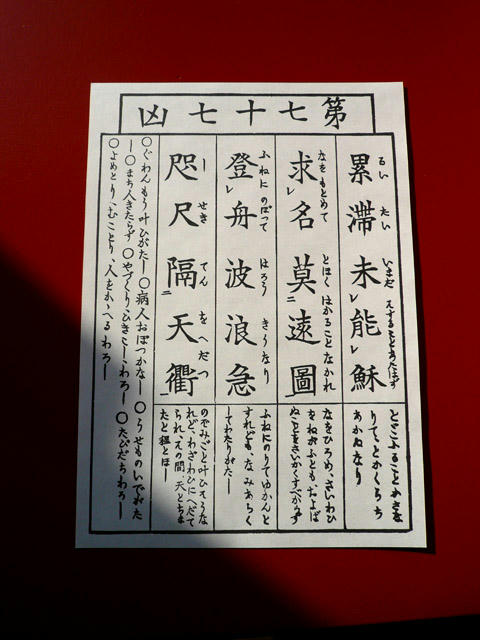 第七十七凶
累滞未能穌
るいたいいまだ
とどこふることかさな
りて、とかくらち
あかぬなり
求名莫遠圖
なをもとめてとほくはかることなかれ
なをひろめ、さいわひ
をねがふともおよば
ぬことをさいかくすべからず
登舟波浪急
ふねにのぼつてはろうきうなり
ふねにのりてゆかんと
すれども、なみあらく
してわたりがたし
咫尺隔天衢
しせきてんをへだつ
のぞみごと叶ひそうな
れど、わざわひにへだて
られ、その間、天とちま
たと程とほし
○ぐわんもう叶ひがたし○病人おぼつかなし○うせものいでがた
し○まち人きたらず○やづくり、ひきこしわろし○たびだちわろし
○よめとり、むことり、人をかゝへるわろし